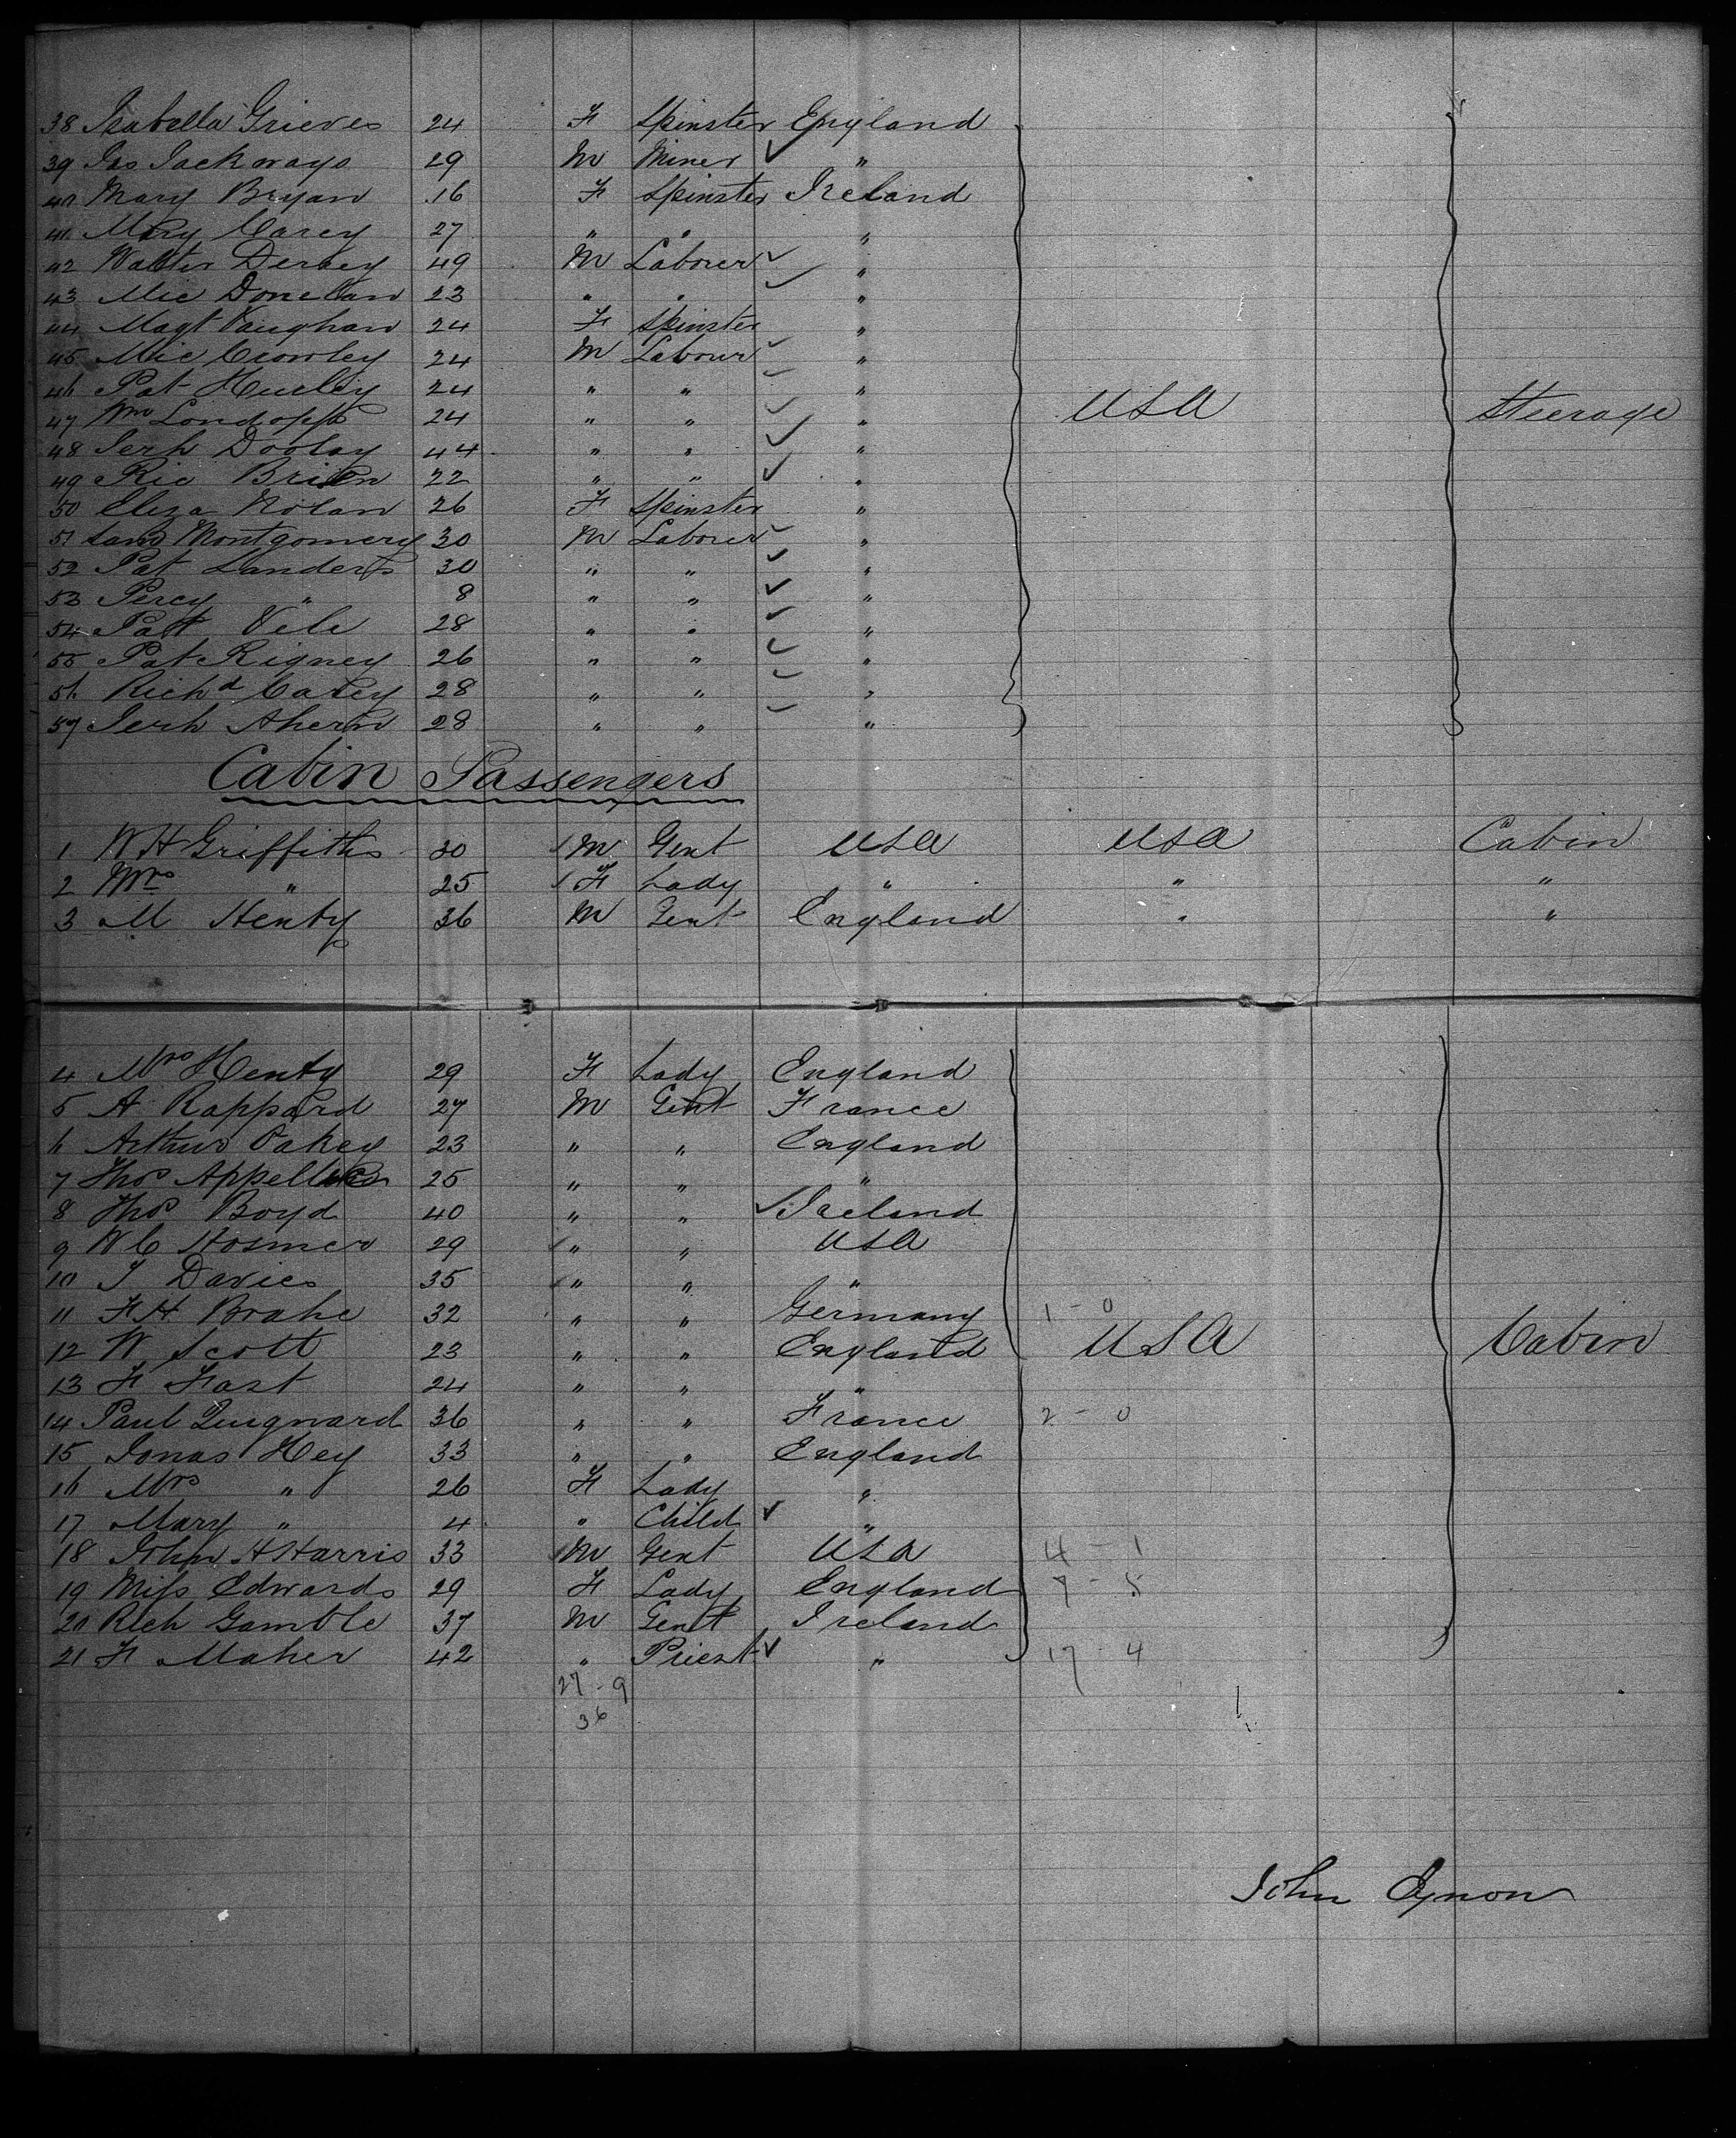 38 Isabella Grieves 24 F Spinster England
39 Jas Jackways 29 M Miner ✓ "
40 Mary Bryan 16 F Spinster Ireland
41 Mary Carey 27 " " "
42 Walter Dervey 49 M Laborer ✓ "
43 Mic Donelan 23 " " ✓ "
44 Magt Vaughan 24 F Spinster "
45 Mic Crowley 24 M Labourr ✓ "
46 Pat Hurley 24 " " ✓ "
47 Wm 24 " " ✓ " USA Steerage
48 Jerh Dooley 44 " " ✓ "
49 Ric Brien 22 " " ✓ "
50 Eliza Nolan 26 F Spinster "
51 Saml Montgomery 30 M Laborer ✓ "
52 Pat Landers 30 " " ✓ "
53 Percy " 8 " " ✓ "
54 Patt Vele 28 " " ✓ "
55 Pat Rigney 26 " " ✓ "
56 Richd Carey 28 " " ✓ "
57 Jerh Ahern 28 " " ✓ "
Cabin Passengers
1 W H Griffiths 30 M Gent USA USA Cabin
2 Mrs " 25 F Lady " " "
3 M Henty 36 M Gent England " "
4 Mrs Henty 29 F Lady England
5 A Rappard 27 M Gent France
6 Arthur Oakey 23 " " England
7 Thos 25 " " "
8 Thos Boyd 40 " " ✓ Ireland
9 W C Hosmer 29 " " USA
10 J Davies 35 " " "
11 F H Brahe 32 " " Germany 1 - 0
12 W Scott 23 " " England USA Cabin
13 F Fast 24 " " "
14 Paul Quignard 36 " " France 2 - 0
15 Jonas Hey 33 " " England
16 Mrs " 26 F Lady "
17 Mary " 4 " Child ✓ "
18 John H Harris 33 M Gent USA 4 - 1
19 Miss Edwards 29 F Lady England 7 - 5
20 Rich Gamble 37 M Gent Ireland
21 F Maher 42 " Priest ✓ " 17 - 4
27 - 9
36
John Gynon